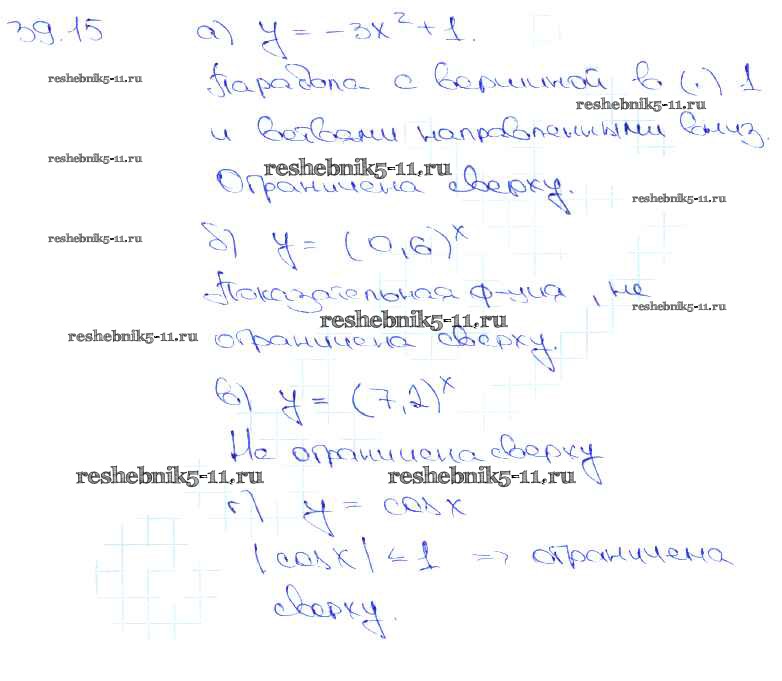 39.15 а) y = -3x² + 1.
reshebnik5-11.ru
Парабола с вершиной в (·) 1
reshebnik5-11.ru
и ветвами направленными вниз.
reshebnik5-11.ru
reshebnik5-11.ru
Ограничена сверху.
reshebnik5-11.ru
reshebnik5-11.ru
б) y = (0,6)^x
Показательная ф-ция, не
reshebnik5-11.ru
reshebnik5-11.ru
reshebnik5-11.ru
ограничена сверху.
в) y = (7,2)^x
Не ограничена сверху
reshebnik5-11.ru reshebnik5-11.ru
г) y = cosx
|cosx| ≤ 1 => ограничена
сверху.